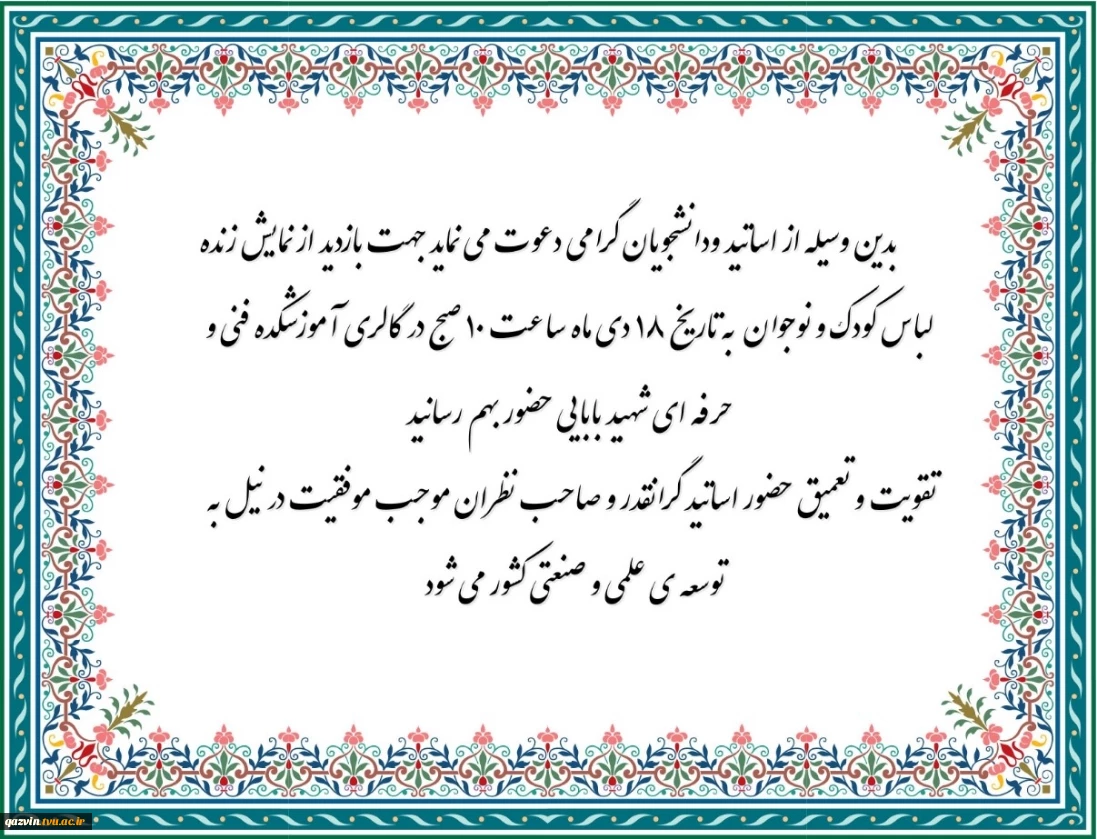 بدین وسیله از اساتید ودانشجویان گرامی دعوت می نماید جهت بازدید از نمایش زنده
لباس کودک و نوجوان به تاریخ ۱۸ دی ماه ساعت ۱۰ صبح در گالری آموزشکده فنی و
حرفه ای شهید بابایی حضور بهم رسانید
تقویت و تعمیق حضور اساتید گرانقدر و صاحب نظران موجب موفقیت در نیل به
توسعه ی علمی و صنعتی کشور می شود
qazvin.tvu.ac.ir